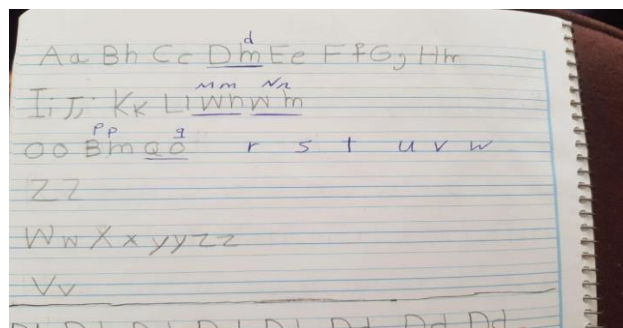 d
Aa Bh Cc Dm Ee Ff Gg Hh
Mm Nn
Ii Jj Kk Ll Wh Wm
Pp q
Oo Bm QO r s t u v w
ZZ
Ww Xx yy zz
Vv
Dd Dd Dd